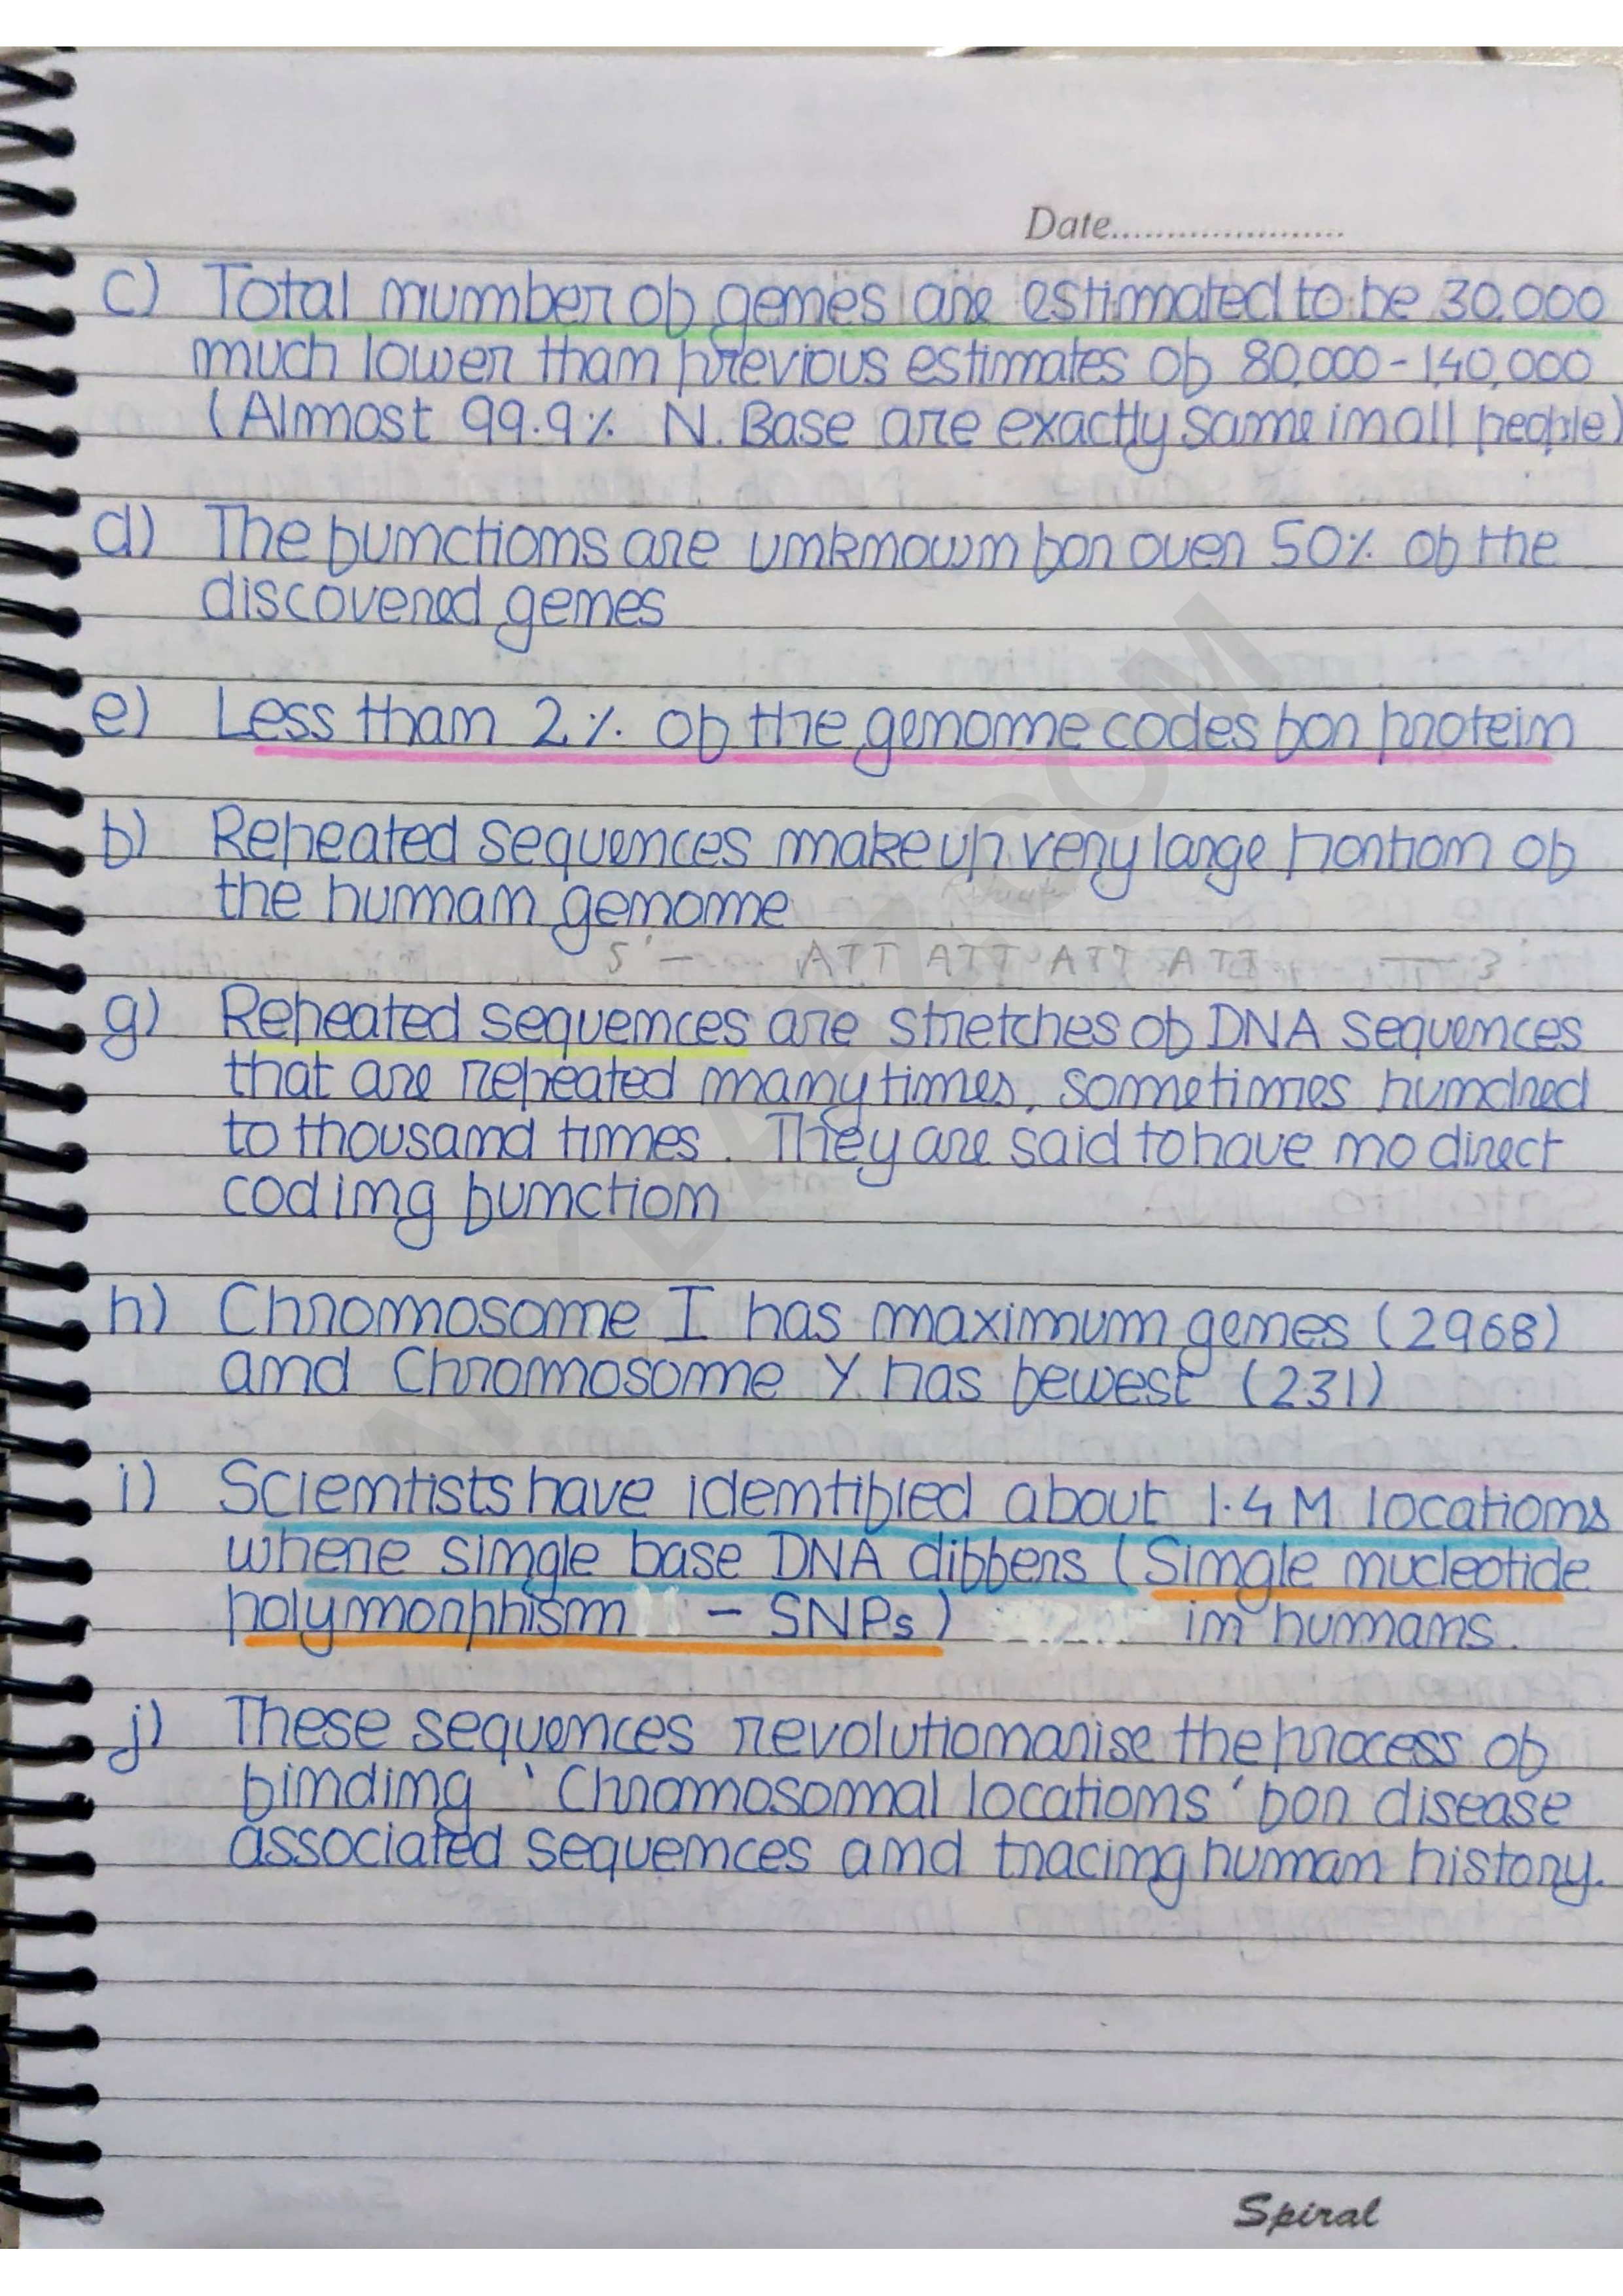 Date......................
c) Total number of genes are estimated to be 30,000
much lower than previous estimates of 80,000-1,40,000
(Almost 99.9% N. Base are exactly same in all people)
d) The functions are unknown for over 50% of the
discovered genes
e) Less than 2% of the genome codes for protein
f) Repeated sequences make up very large portion of
the human genome
5' — ATT ATT ATT ATT — 3'
g) Repeated sequences are stretches of DNA sequences
that are repeated many times, sometimes hundred
to thousand times. They are said to have no direct
coding function
h) Chromosome I has maximum genes (2968)
and Chromosome Y has fewest (231)
i) Scientists have identified about 1.4 M locations
where single base DNA differs (Single nucleotide
polymorphism - SNPs) in humans.
j) These sequences revolutionarise the process of
finding 'Chromosomal locations' for disease
associated sequences and tracing human history.
Spiral